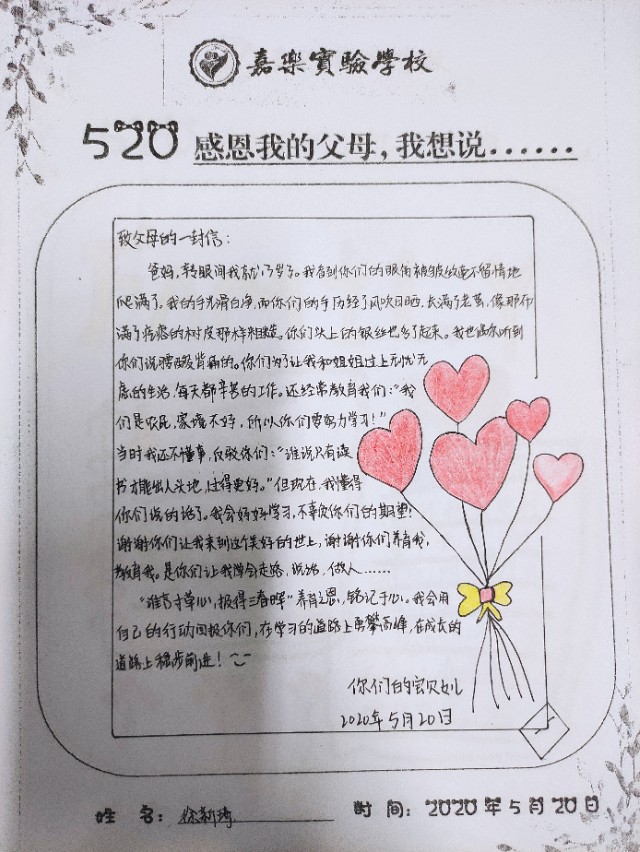 嘉樂實驗學校
520 感恩我的父母，我想说......
致父母的一封信：
爸妈，转眼间我就13岁了。我看到你们的眼角被皱纹毫不留情地
爬满了。我的手光滑白净，而你们的手历经了风吹日晒，长满了老茧，像那布
满了疮痍的树皮那样粗糙。你们头上的银丝也多了起来。我也偶尔听到
你们说腰酸背痛的。你们为了让我和姐姐过上无忧无
虑的生活，每天都辛苦的工作。还经常教育我们：“我
们是农民，家境不好，所以你们要努力学习！”
当时我还不懂事，反驳你们：“谁说只有读
书才能出人头地，过得更好。”但现在，我懂得
你们说的话了。我会好好学习，不辜负你们的期望！
谢谢你们让我来到这个美好的世上，谢谢你们养育我，
教育我。是你们让我学会走路、说话、做人……
“谁言寸草心，报得三春晖”养育之恩，铭记于心。我会用
自己的行动回报你们，在学习的道路上勇攀高峰，在成长的
道路上稳步前进！
你们的宝贝女儿
2020年5月20日
姓 名：徐新琦
时 间：2020年5月20日